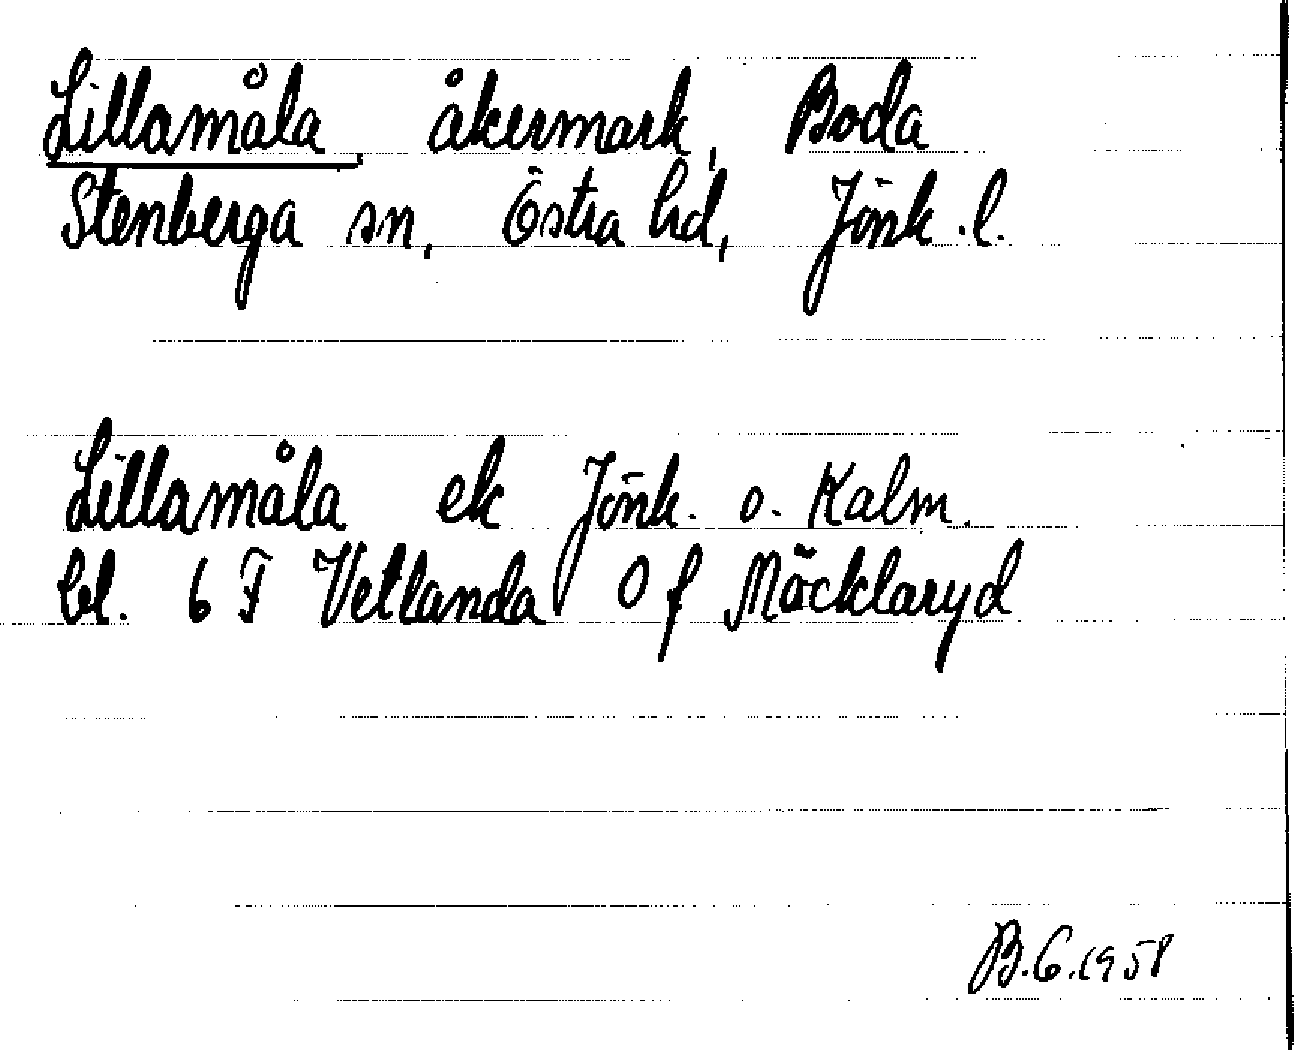 Lillamåla, åkermark, Boda
Stenberga sn, Östra hd, Jönk. l.
Lillamåla ek Jönk. o. Kalm.
bl. 6 F Vetlanda 0 f Mäcklaryd
B.G.1958